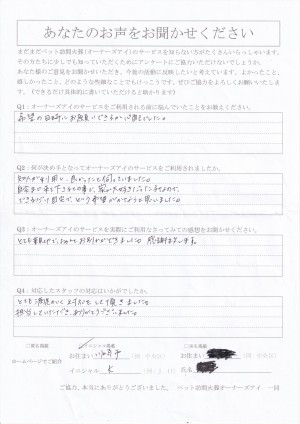 あなたのお声をお聞かせください
まだまだペット訪問火葬(オーナーズアイ)のサービスを知らない方がたくさんいらっしゃいます。
その方たちに少しでも知っていただくためにアンケートにご協力いただけないでしょうか。
あなた様のご意見をお聞かせいただき、今後の活動に反映したいと考えています。よかったこと、
嬉しかったこと、どのような些細なことでもけっこうです。ぜひご協力をよろしくお願いいたします。
(できるだけ具体的に書いていただけると助かります)
Q1:オーナーズアイのサービスをご利用される前に悩んでいたことをお教えください。
希望の日時にお願いできるか心配でした。
Q2:何が決め手となってオーナーズアイのサービスをご利用されましたか。
知人が利用し、良かったと伺っていました。
自宅まで来て下さるとの事で、家が大好きだった子なので、
できるだけ自宅で、という希望がかなうと思いました。
Q3:オーナーズアイのサービスを実際にご利用なさってみての感想をお聞かせください。
とても親切で、ゆっくりお別れができました。感謝します。
Q4:対応したスタッフの対応はいかがでしたか。
とても清潔かつ丁寧に対応をして頂きました。
担当していただき、ありがとうございました。
□匿名掲載
イニシャル掲載
□実名掲載
ホームページでご紹介
お住まい
イニシャル K
お住まい
氏名
ご協力、本当にありがとうございました。 ペット訪問火葬オーナーズアイ 一同